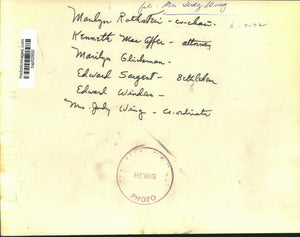 Mrs Judy Wing
6-7-72
Marilyn Rothstein - co-chair
Kenneth Mac Affer - attorney
Marilyn Glicksman -
Edward Sargent - Bethlehem
Edward Winders -
Mrs. Judy Wing - co-ordinator
HEWIG
PHOTO